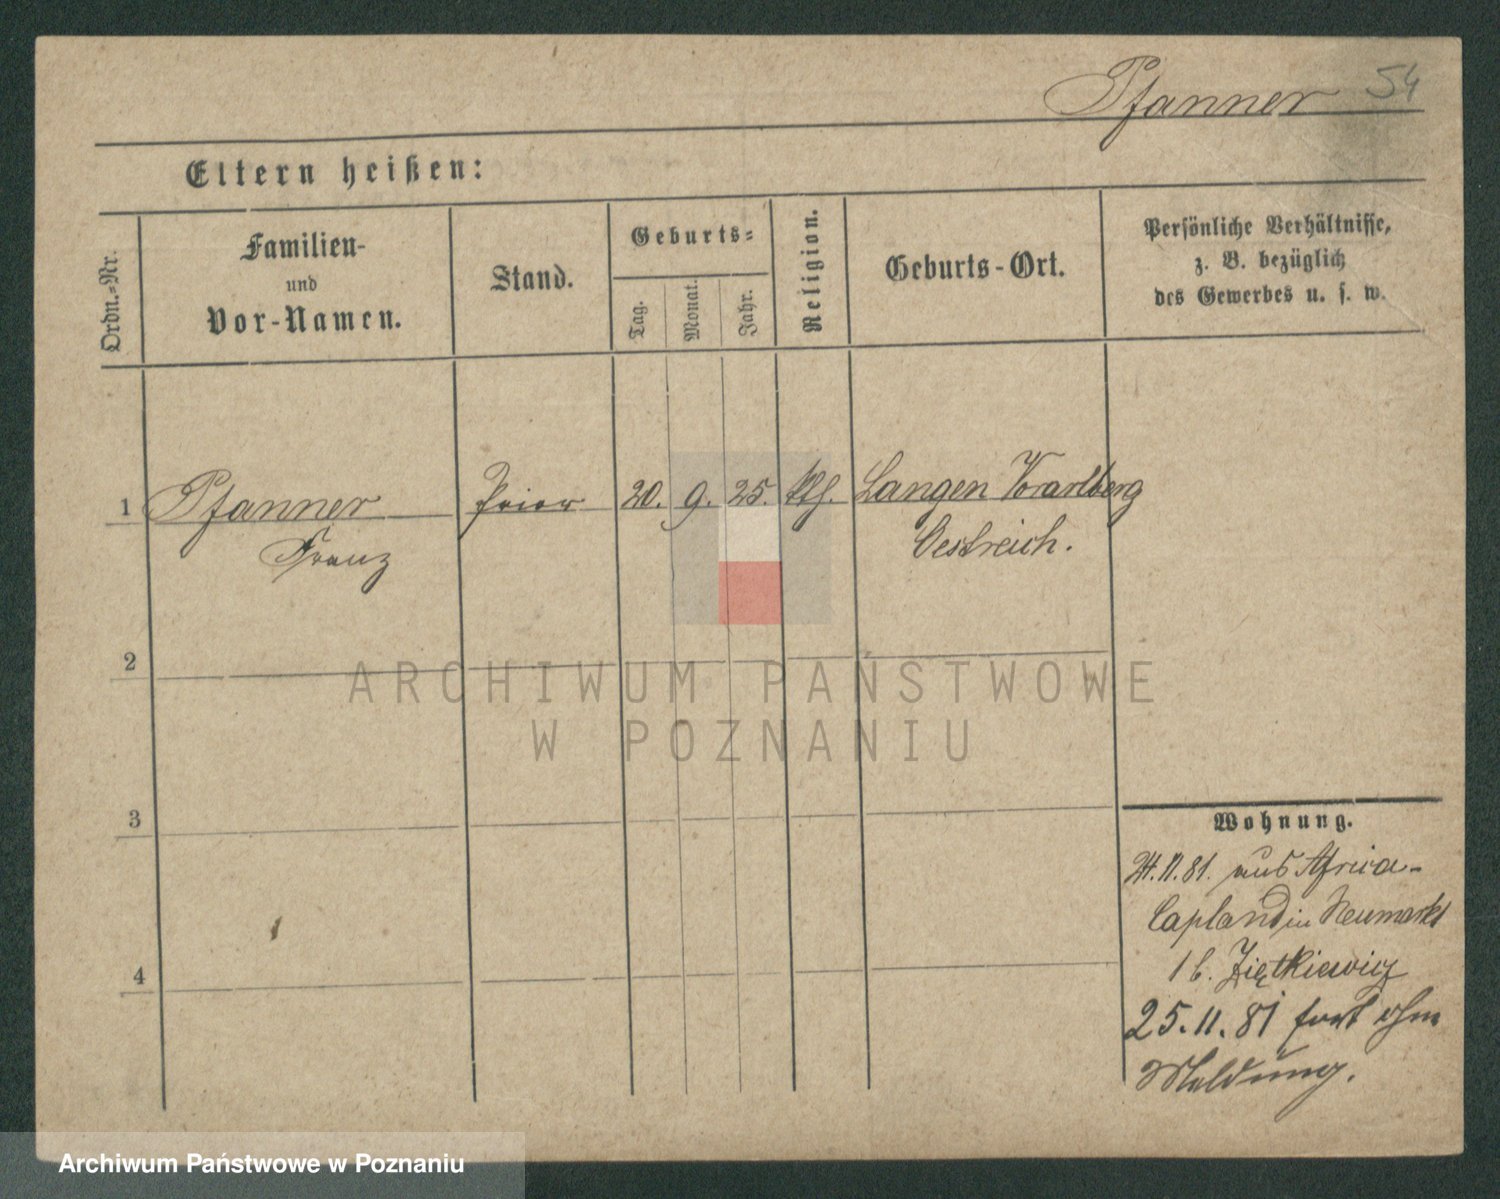 Pfanner 54
Eltern heißen:
Ordn.-Nr.
Familien-
und
Vor-Namen.
Stand.
Geburts-
Tag.
Monat.
Jahr.
Religion.
Geburts-Ort.
Persönliche Verhältnisse,
z. B. bezüglich
des Gewerbes u. s. w.
1 Pfanner Prior 20. 9. 25. kth. Langen Vorarlberg
Franz Oestreich.
2
3
4
Wohnung.
24.11.81. aus Africa-
Capland in Neumarkt
1 b. Ziętkiewicz
25.11.81 fort ohne
Meldung.
ARCHIWUM PAŃSTWOWE
W POZNANIU
Archiwum Państwowe w Poznaniu